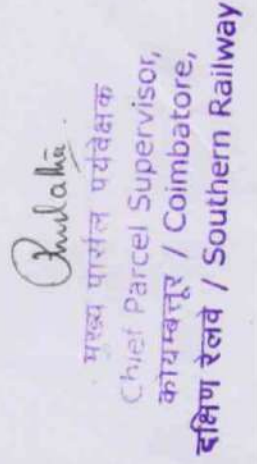 मुख्य पार्सल पर्यवेक्षक
Chief Parcel Supervisor,
कोयम्बत्तूर / Coimbatore,
दक्षिण रेलवे / Southern Railway